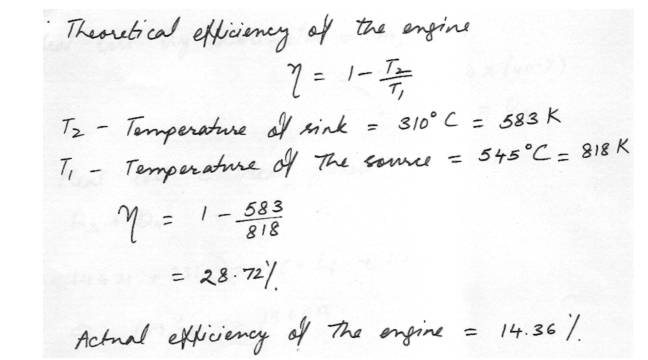 Theoretical efficiency of the engine
η = 1 - T2/T1
T2 - Temperature of sink = 310° C = 583 K
T1 - Temperature of The source = 545°C = 818 K
η = 1 - 583/818
= 28.72%
Actual efficiency of The engine = 14.36 %.